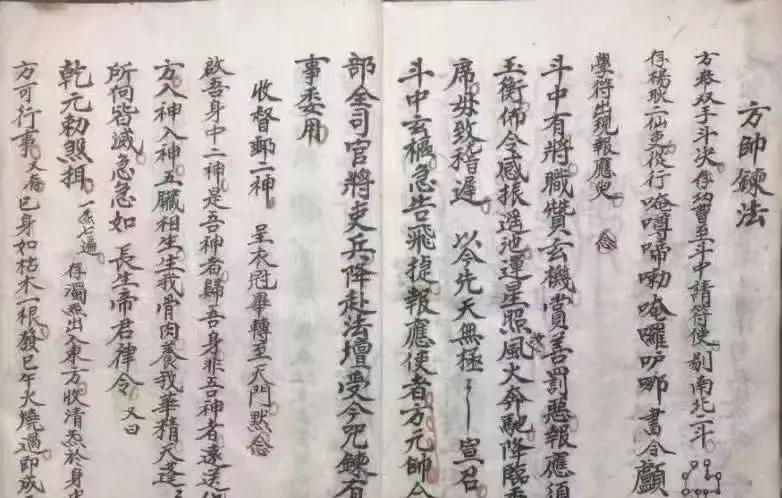 方帥鍊法
方發双手斗決存功曹至斗中請符使剔南北二斗
存楊耿二仙吏役行唵嚩啼嘞唵囉吣哪書合顱
學符出現報應皃 念
斗中有將職贊玄機賞善罰惡報應須
玉衡佈令感振遥池運星照風火奔馳降臨
席毋致稽遲 以今先天無極宣召
斗中玄樞急告飛捷報應使者方元帥
部全司官將吏兵降赴法壇受令咒鍊有
事委用
收督郵二神 呈衣冠畢轉至天門默念
啟吾身中二神是吾神者歸吾身非吾神者速送
方入神入神五臟相生生我骨肉養我華精天蓬
所向皆滅急急如 長生帝君律令 又曰
乾元勅煞揖 一炁七遍 存濁炁出入東方收清炁於身
方可行事 又存巳身如枯木一根發巳午火燒過即成